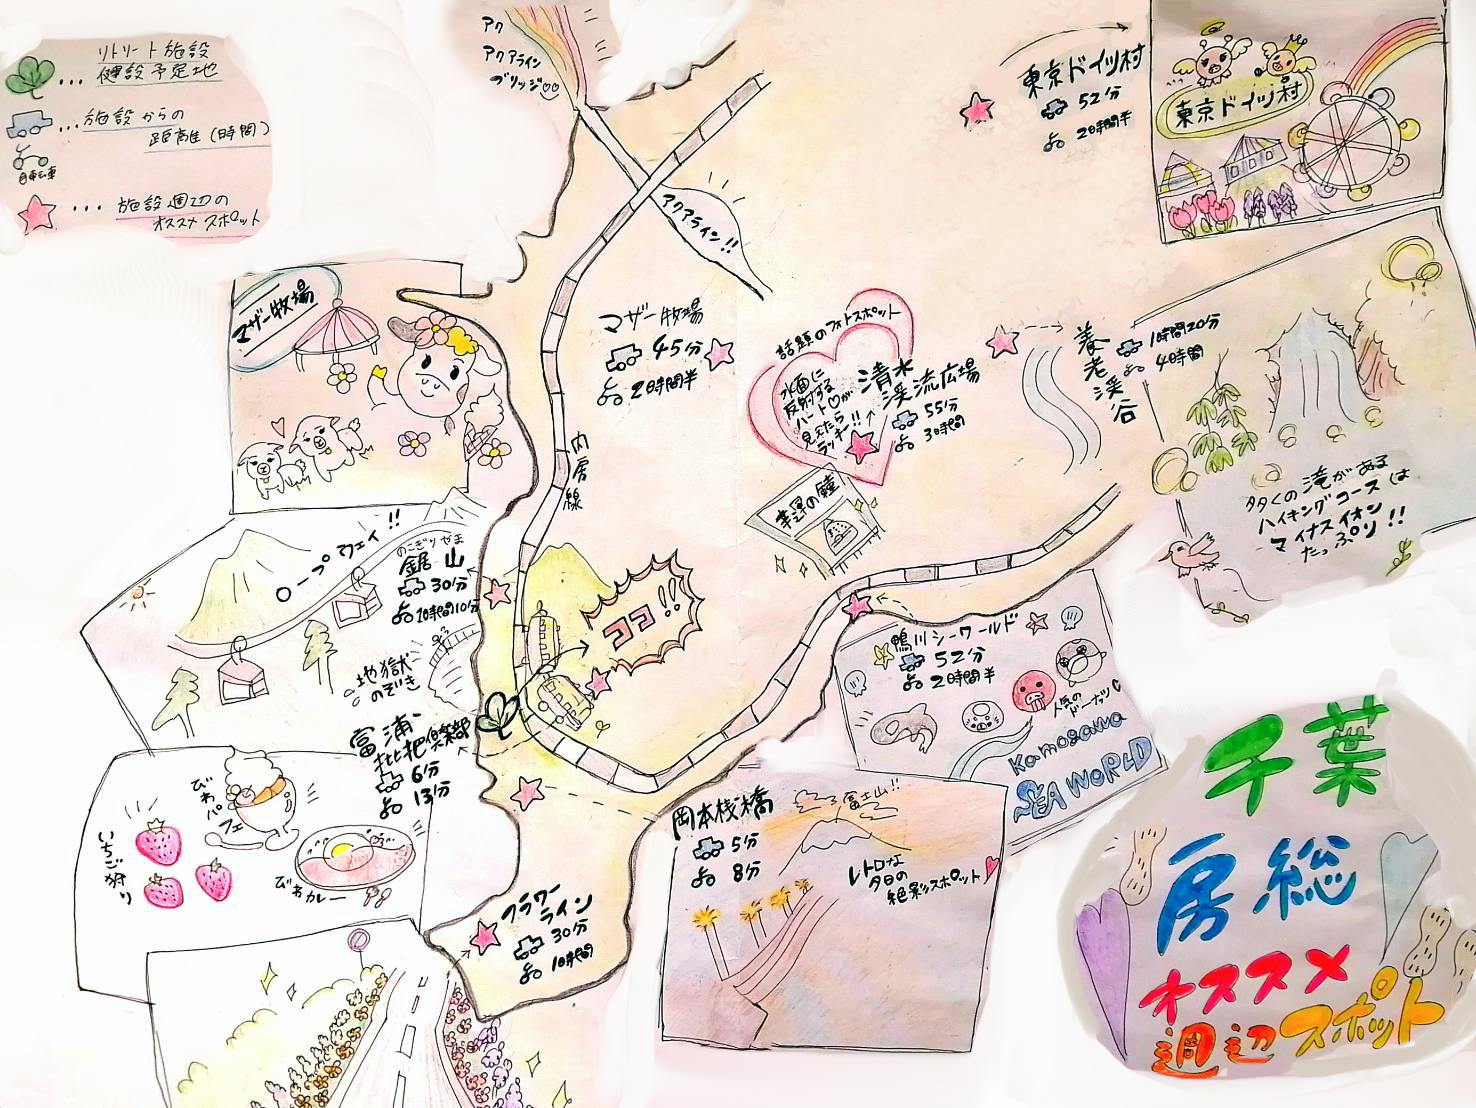 リトリート施設
健設予定地
...施設からの
距離(時間)
自転車
...施設週辺の
オススメスポット
アク
アクアライン
ブリッジ♡♡
アクアライン!!
東京ドイツ村
52分
2時間半
東京ドイツ村
マザー牧場
マザー牧場
45分
2時間半
内房線
話題のフォトスポット
水面に
反射する
ハート♡が
見えたら
ラッキー!!
清水
渓流広場
55分
3時間
幸運の鐘
養老渓谷
1時間20分
4時間
多くの滝がある
ハイキングコースは
マイナスイオン
たっぷり!!
ロープウェイ!!
のこぎりやま
鋸山
30分
1時間10分
地獄
のぞき
ココ!!
富浦
枇杷倶楽部
6分
13分
びわパフェ
いちご狩り
びわカレー
鴨川シーワールド
52分
2時間半
人気の
ドーナッツ
Kamogawa
SEA WORLD
岡本桟橋
5分
8分
富士山!!
レトロな
夕日の
絶景スポット
フラワー
ライン
30分
1時間
千葉
房総
オススメ
週辺スポット